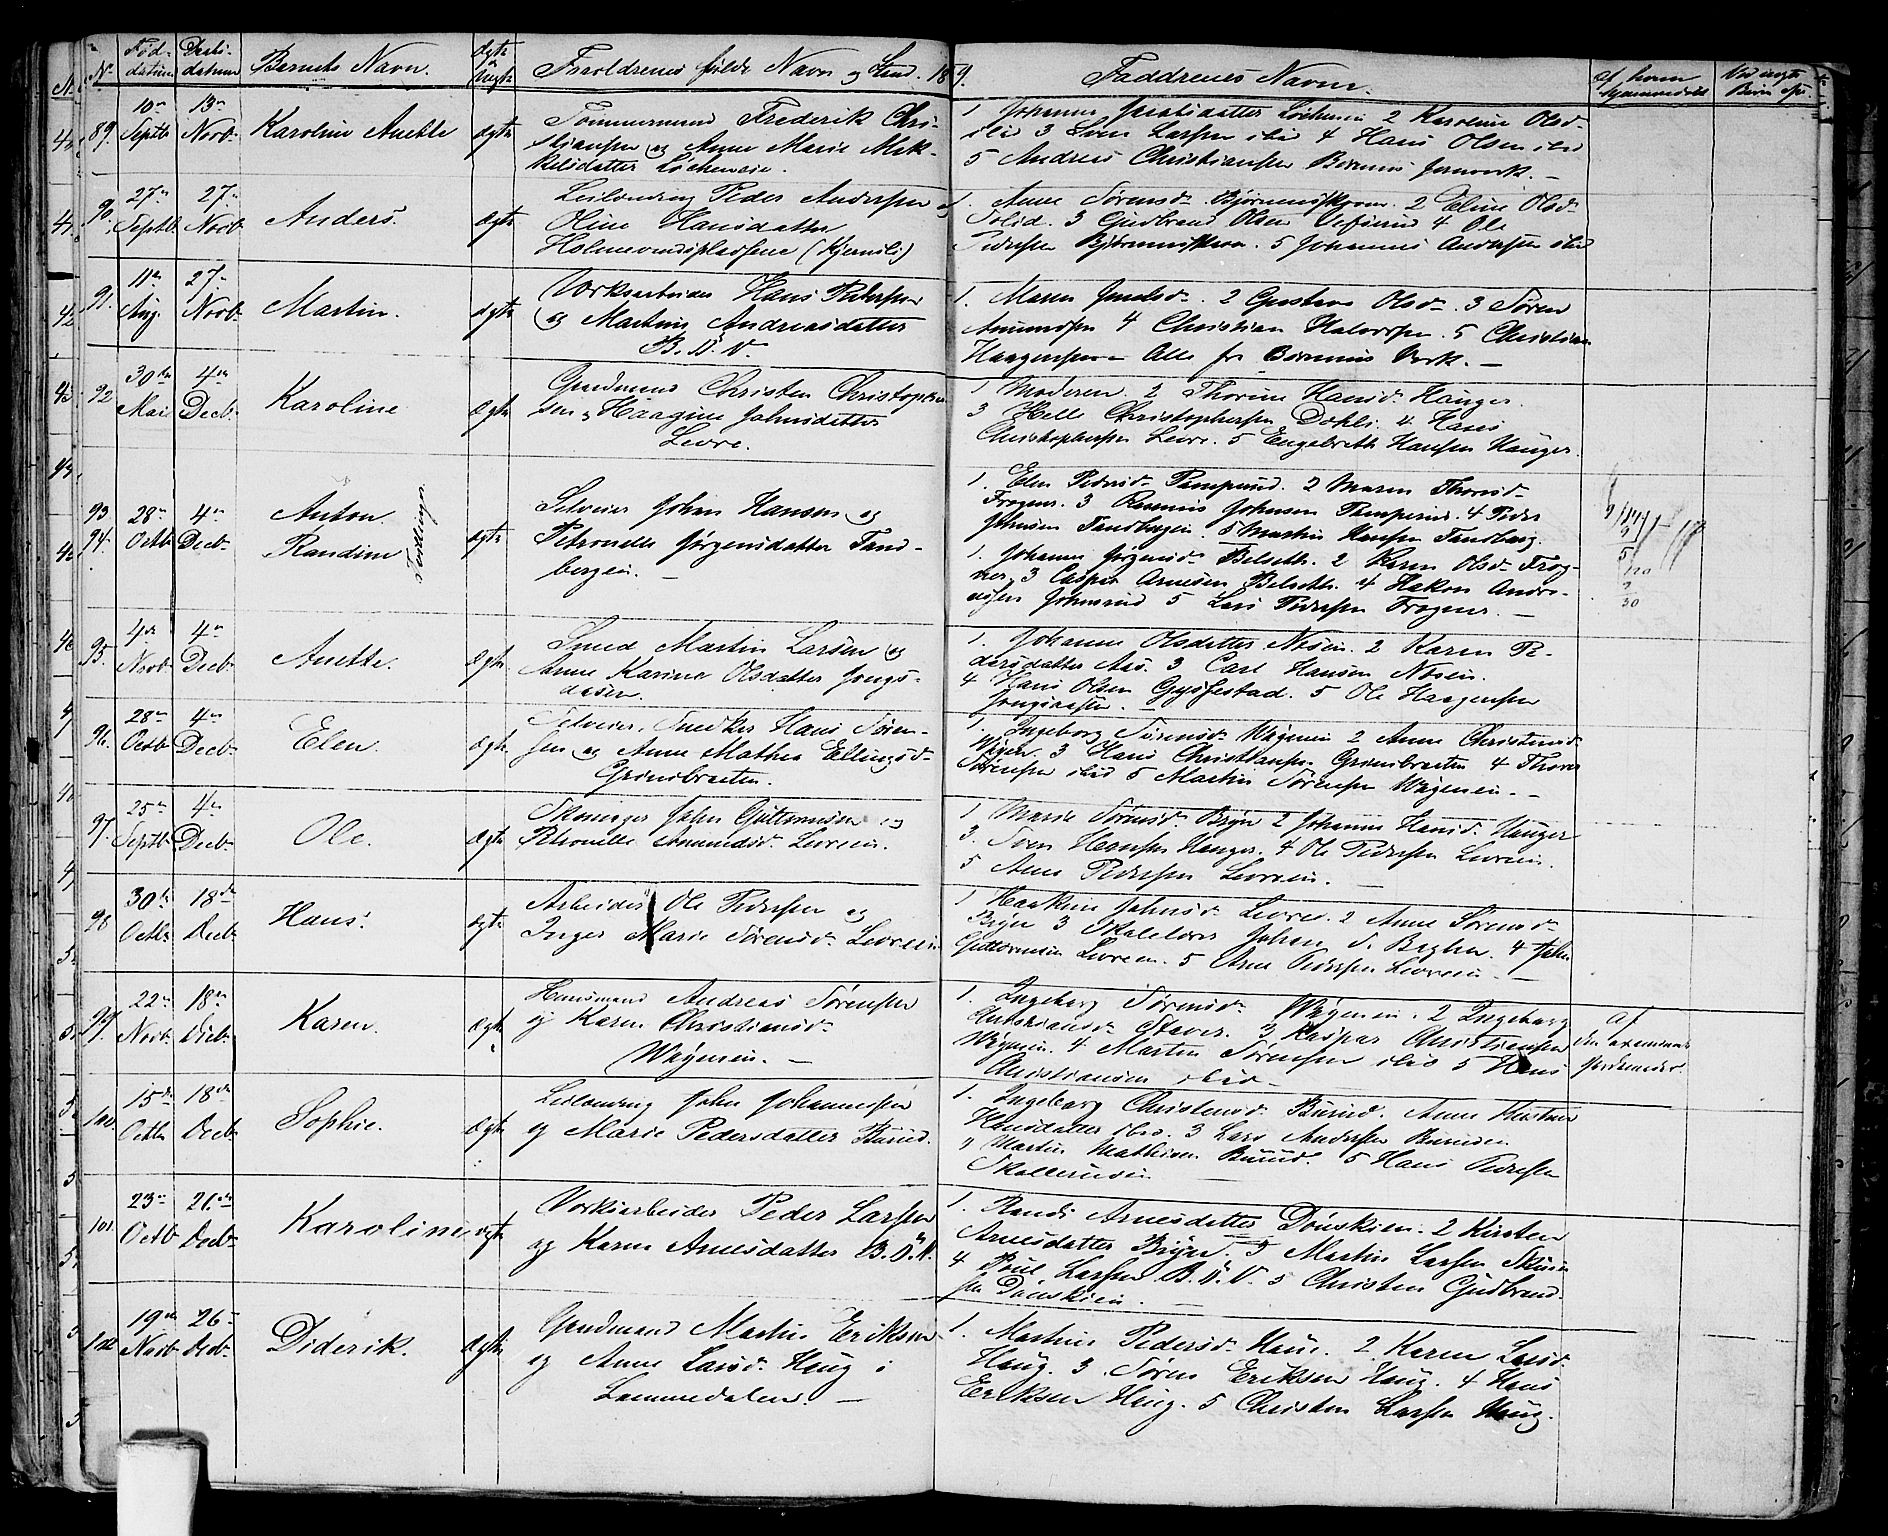 N. Fød- datum Døbs- datum Barnets Navn. Ægte Uægte Forældrenes fulde Navn og Stand. 1859. Faddrenes Navne. af hvem hjemmedøbt
89. 10de Septb. 13de Novb. Karoline Anette ægte Tømmermand Frederik Chri-
stiansen og Anne Marie Mik-
kelsdatter Løkkeneie.
1. Johanne 2 Karoline Olsd.
ibid 3 Lars Larsen ibid 4 Hans Olsen ibid
5 Andreas Christiansen Bærums Jernverk. —
90. 27de Septb. 27de Novb. Anders. ægte Leilænding Peder Andersen og
Oline Hansdatter
Holmevandspladsene (Kjernsli)
1. Anne Sørensd. 2 Eline Olsd.
3 Gudbrand Olsen 4 Ole
Pedersen 5 Johannes Andersen ibid
91. 11te Aug. 27de Novb. Martin. ægte Værksarbeider Hans Pedersen
og Martine Andreasdatter
B. V.
1. Maren 2 Gustava Olsd. 3 Søren
Amundsen 4 Christian Halvorsen. 5 Christian
Haagensen Alle fr Bærums Værk. —
92 30te Mai 4de Decb. Karoline ægte Gaardmand Christen Christophers-
sen og Haagine Johnsdatter
Levre.
1 Moderen 2 Thorine Hansd. Hauger
3 Helle Christophersen Dahli. 4 Hans
Christophersen Levre. 5 Engebreth Hansen Hauger.
93 94. 28de Octb. 4de Decb. Anton. Randine Tvillinger ægte Selveier Johan Hansen og
Petronelle Jørgensdatter Tand-
bergeie. —
1. Elen Pedersd. 2 Maren Thorsd.
Frogner. 3 Rasmus Johnsen 4 Peder
Johnsen Tandbergeie. 5 Martin Hansen Tandberg.
1. Johanne Jørgensd. Belseth. 2 Karen Olsd. Frog-
ner, 3 Casper Arnesen Belseth. 4 Hakon Andre-
asen Johnsrud 5 Lars Pedersen Frogner. —
95. 4de Novb. 4de Decb. Anette. ægte Smed Martin Larsen og
Anne Karine Olsdatter Jongs-
aasen.
1. Johanne Olsdatter Næsen. 2 Karen Pe-
dersdatter Aas. 3 Carl Hansen Næsen.
4 Hans Olsen Gjesestad. 5 Ole Haagensen
Jongsaasen. —
96. 28de Octb. 4de Decb. Elen. ægte Selveier, Snedker Hans Søren-
sen og Anne Mathea Ellingsd.
Grinibraaten.
1. Ingeborg Sørensd. Wøyenen 2 Anne Christensd.
3 Hans Christiansen Grinibraaten 4 Thorer
Sørensen ibid 5 Martin Sørensen Wøyenen. —
97. 25de Septb. 4de Decb. Ole. ægte Skomager John Guttormsen og
Petronelle Amundsd. Levreeie.
1 Marie Sørensd. Bryn 2 Johanne Hansd. Hauger
3. Sven Hansen Hauger. 4 Ole Pedersen Levreeie.
5 Arne Pedersen Levreeie. —
98 30te Octb. 18de Decb. Hans. ægte Arbeider Ole Pedersen og
Inger Marie Sørensd. Levreeie
1 Haakine Johnsd. Levre. 2 Anne Sørensd.
Bryn 3 Skolelærer Johan 4 John
Guttormsen Levreeie. 5 Arne Pedersen Levreeie —
99. 22de Novb. 18de Decb. Karen. ægte Huusmand Andreas Sørensen
og Karen Christiansd.
Wøyeneie. —
1. Ingeborg Sørensd. Wøyeneie. 2 Ingeborg
Christiansd. Staver. 3 Kaspar Christiansen
Wøyeneie. 4 Martin Sørensen ibid 5 Hans
Christiansen ibid —
Af den examinerede Jordemoder.
100. 15de Octb. 18de Decb. Sophie. ægte Leilænding John Johannesen
og Marie Pedersdatter Burud.
1. Ingeborg Christensd. Burud. Anne Kirstine
Hansdatter ibid. 3 Lars Andersen Burudeie
4 Martin Mathisen Burud. 5 Hans Pedersen
Skollerudeie —
101. 23de Octb. 26de Decb. Karoline ægte Værksarbeider Peder Larsen
og Karen Arnesdatter B. V.
1. Randi Arnesdatter Dønskien. 2 Kirsten
Arnesdatter Bryn. 3 Martin Larsen
4 Poul Larsen B. V. 5 Christen Gudbrand-
sen Dønskien. —
102 19de Novb. 26de Decb. Diderik. ægte Gaardmand Martin Eriksen
og Anne Larsd. Haug i
Lommedalen. —
1. Martine Pedersd. Haug. 2 Karen Larsd.
Haug. 3. Søren Eriksen Haug. 4 Hans
Eriksen Haug. 5 Christen Larsen Haug.